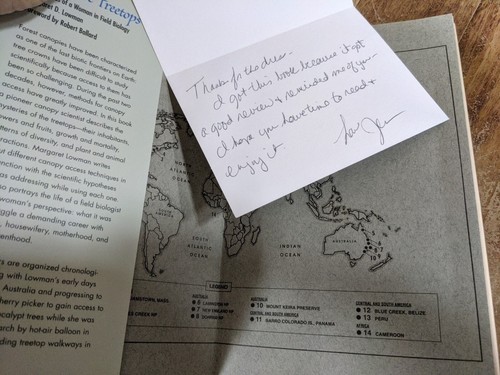 e Treetops
e of a Woman in Field Biology
et D. Lowman
eword by Robert Ballard
Forest canopies have been characterized
as one of the last biotic frontiers on Earth.
tree crowns have been difficult to study
scientifically because access to them has
been so challenging. During the past two
decades, however, methods for canopy
access have greatly improved. In this book
a pioneer canopy scientist describes the
mysteries of the treetops—their inhabitants,
owers and fruits, growth and mortality,
tterns of diversity, and plant and animal
ractions. Margaret Lowman writes
ut different canopy access techniques in
nction with the scientific hypotheses
as addressing while using each one.
o portrays the life of a field biologist
woman's perspective: what it was
uggle a demanding career with
, housewifery, motherhood, and
enthood.
rs are organized chronologi-
g with Lowman's early days
Australia and progressing to
herry picker to gain access to
calypt trees while she was
arch by hot-air balloon in
ding treetop walkways in
Thanks for the dress.
I got this book because it got
a good review & reminded me of you.
I hope you have time to read &
enjoy it.
Love
SOUTH
ATLANTIC
OCEAN
INDIAN
OCEAN
AUSTRALIA
LEGEND
MSTOWN, MASS.
CREEK NP
AUSTRALIA
6 LAMINGTON NP
7 NEW ENGLAND NP
8 DORRIGO NP
AUSTRALIA
10 MOUNT KEIRA PRESERVE
CENTRAL AND SOUTH AMERICA
11 BARRO COLORADO IS., PANAMA
CENTRAL AND SOUTH AMERICA
12 BLUE CREEK, BELIZE
13 PERU
AFRICA
14 CAMEROON